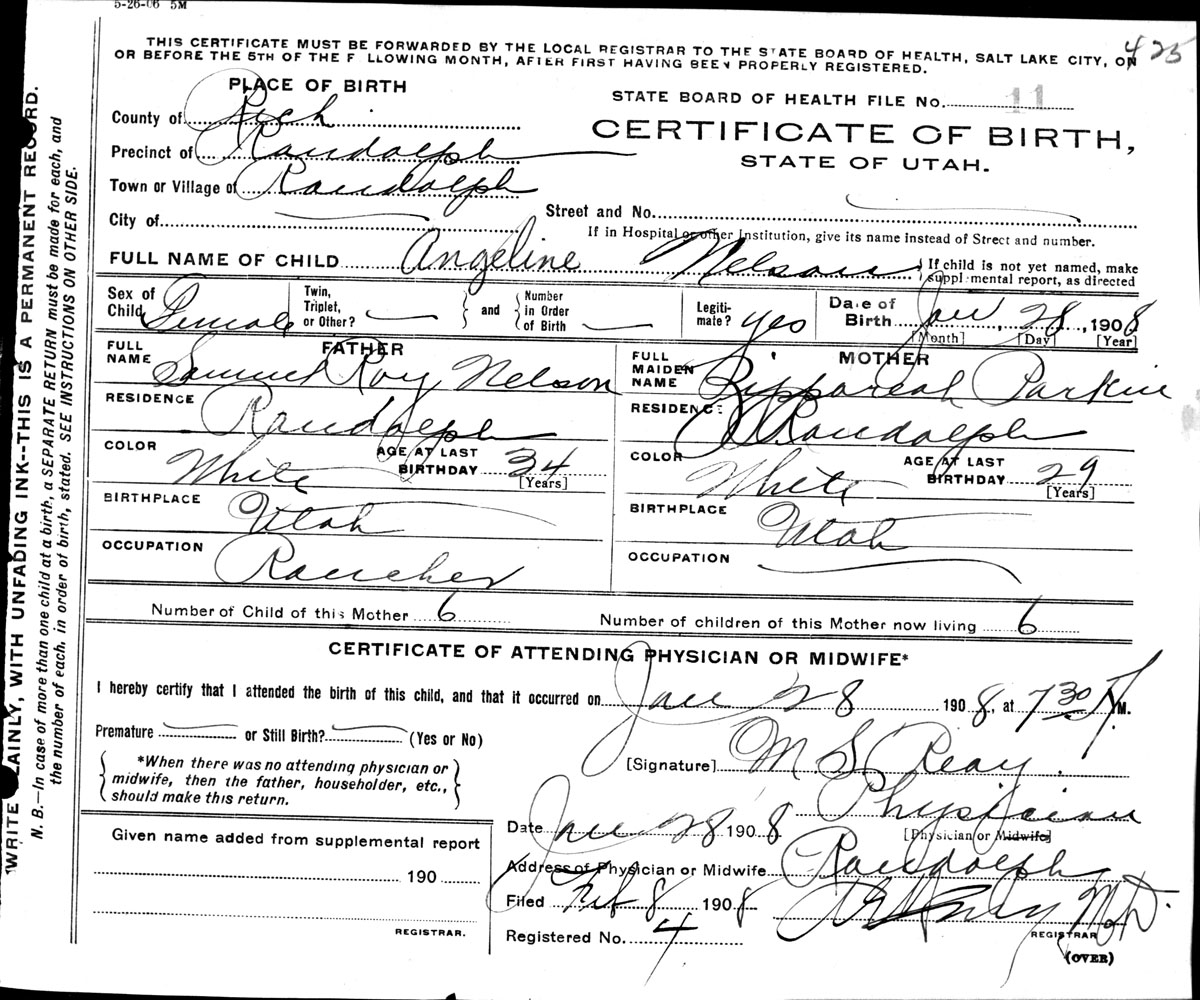 5-26-06 5M
425
THIS CERTIFICATE MUST BE FORWARDED BY THE LOCAL REGISTRAR TO THE STATE BOARD OF HEALTH, SALT LAKE CITY, ON
OR BEFORE THE 5TH OF THE F LLOWING MONTH, AFTER FIRST HAVING BEEN PROPERLY REGISTERED.
PLACE OF BIRTH
STATE BOARD OF HEALTH FILE No. 11
County of Rich
CERTIFICATE OF BIRTH,
Precinct of Randolph
STATE OF UTAH.
Town or Village of Randolph
City of
Street and No.
If in Hospital or other Institution, give its name instead of Street and number.
FULL NAME OF CHILD Angeline Nelson
If child is not yet named, make
suppl mental report, as directed
Sex of Child Female
Twin, Triplet, or Other?
and
Number in Order of Birth
Legiti-mate? yes
Date of Birth Jan 28, 1908
[Month] [Day] [Year]
FATHER
FULL NAME Samuel Roy Nelson
RESIDENCE Randolph
COLOR White
AGE AT LAST BIRTHDAY 34
[Years]
BIRTHPLACE Utah
OCCUPATION Rancher
MOTHER
FULL MAIDEN NAME Parkin
RESIDENCE Randolph
COLOR White
AGE AT LAST BIRTHDAY 29
[Years]
BIRTHPLACE Utah
OCCUPATION
Number of Child of this Mother 6
Number of children of this Mother now living 6
CERTIFICATE OF ATTENDING PHYSICIAN OR MIDWIFE*
I hereby certify that I attended the birth of this child, and that it occurred on Jan 28 1908, at 7 30 M.
Premature or Still Birth? (Yes or No)
*When there was no attending physician or
midwife, then the father, householder, etc.,
should make this return.
[Signature] M S Reay
Physician
[Physician or Midwife]
Date Jan 28 1908
Address of Physician or Midwife Randolph
Filed Feb 8 1908
M.D.
REGISTRAR
Registered No. 4
(OVER)
Given name added from supplemental report
190
REGISTRAR.
WRITE LAINLY, WITH UNFADING INK--THIS IS A PERMANENT RECORD.
N. B.—In case of more than one child at a birth, a SEPARATE RETURN must be made for each, and
the number of each, in order of birth, stated. SEE INSTRUCTIONS ON OTHER SIDE.